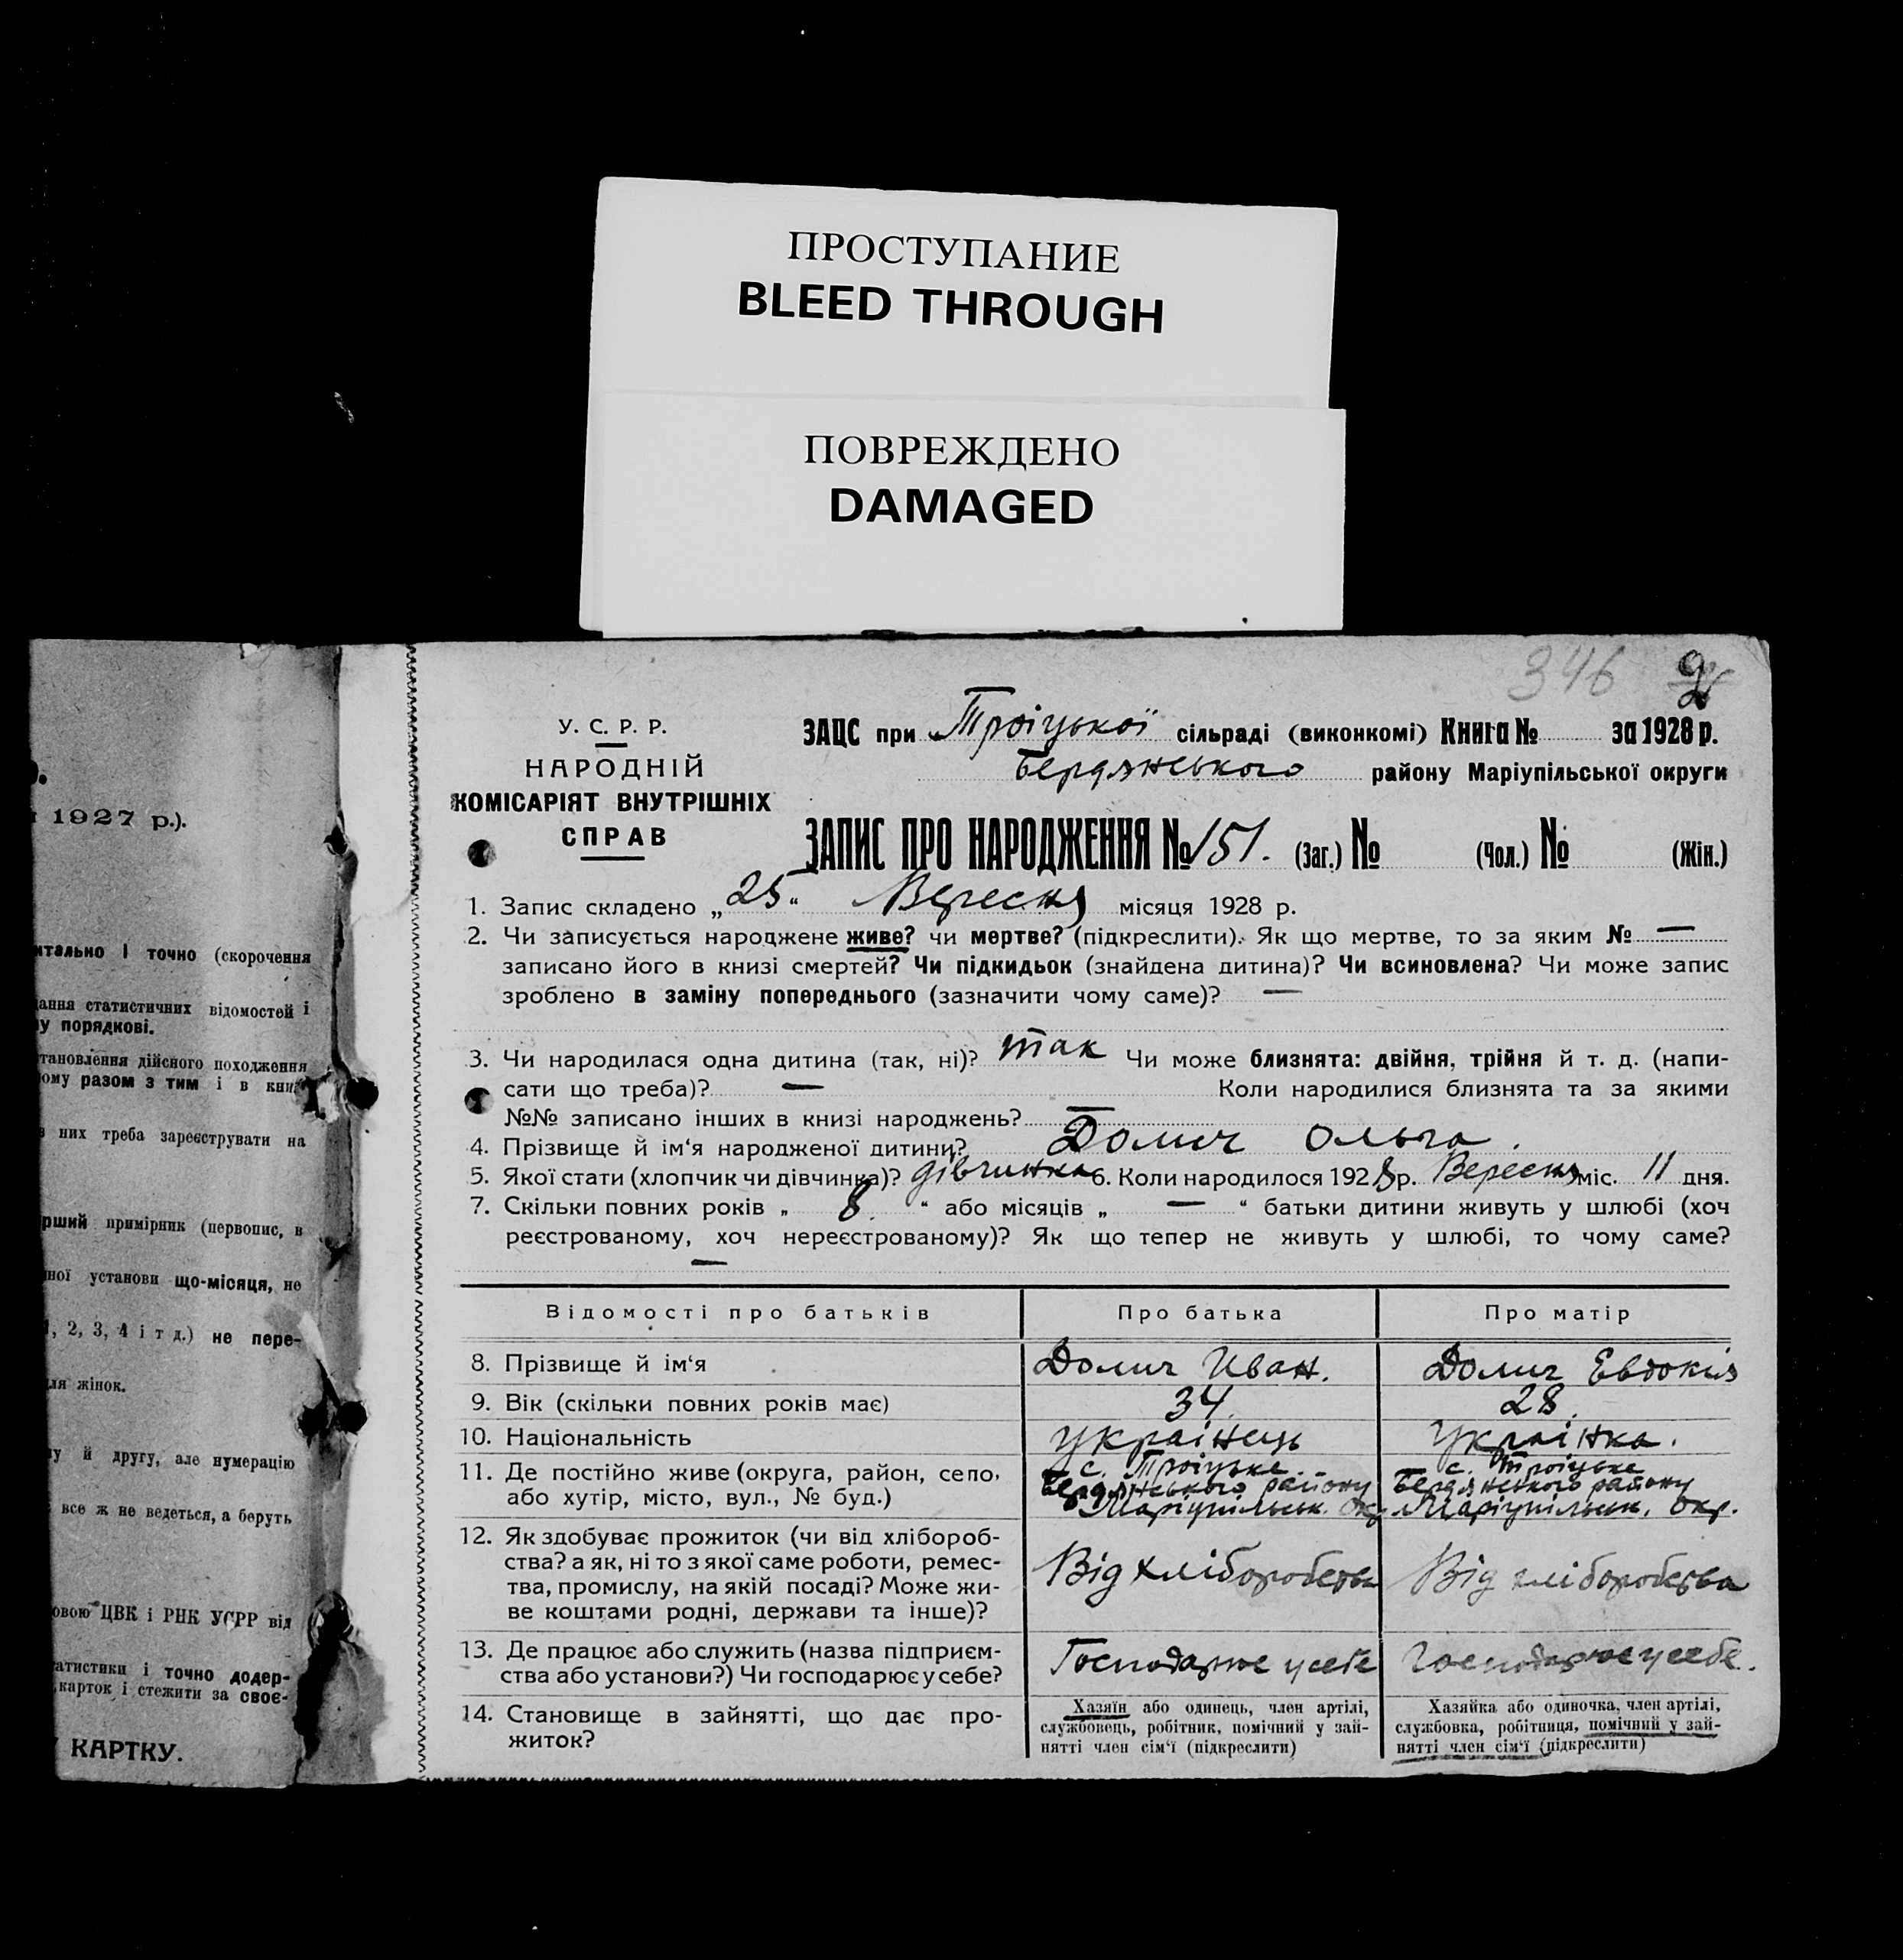 ПРОСТУПАНИЕ
BLEED THROUGH
ПОВРЕЖДЕНО
DAMAGED
1927 р.).
итально і точно (скорочення
дання статистичних відомостей і
у порядкові.
становлення дійсного походження
ому разом з тим і в книг
них треба зареєструвати на
рший примірник (первопис, в
ної установи що-місяця, не
, 2, 3, 4 і т д.) не пере-
ля жінок.
у й другу, але нумерацію
все ж не ведеться, а беруть
овою ЦВК і РНК УСРР від
атистики і точно додер-
карток і стежити за своє-
КАРТКУ.
346 2
У. С. Р. Р.
НАРОДНІЙ
КОМІСАРІЯТ ВНУТРІШНІХ
СПРАВ
ЗАЦС при Троіцької сільраді (виконкомі) Книга № за 1928 р.
Бердянського району Маріупільської округи
ЗАПИС ПРО НАРОДЖЕННЯ № 151. (Заг.) № (Чол.) № (Жін.)
1. Запис складено „25“ Вересня місяця 1928 р.
2. Чи записується народжене живе? чи мертве? (підкреслити). Як що мертве, то за яким № —
записано його в книзі смертей? Чи підкидьок (знайдена дитина)? Чи всиновлена? Чи може запис
зроблено в заміну попереднього (зазначити чому саме)? —
3. Чи народилася одна дитина (так, ні)? так Чи може близнята: двійня, трійня й т. д. (напи-
сати що треба)? — Коли народилися близнята та за якими
№№ записано інших в книзі народжень? —
4. Прізвище й ім‘я народженої дитини? Долич Ольга.
5. Якої стати (хлопчик чи дівчинка)? дівчинка 6. Коли народилося 1928 р. Вересня міс. 11 дня.
7. Скільки повних років „ 8. “ або місяців „ — “ батьки дитини живуть у шлюбі (хоч
реєстрованому, хоч нереєстрованому)? Як що тепер не живуть у шлюбі, то чому саме?
—
Відомості про батьків Про батька Про матір
8. Прізвище й ім‘я Долич Иван. Долич Евдокія
9. Вік (скільки повних років має) 34 28.
10. Національність Украінець Украінка.
11. Де постійно живе (округа, район, село, с. Троіцьке с. Троіцьке
або хутір, місто, вул., № буд.) Бердянського району Бердянського району
Маріупільськ. окр. Маріупільськ. окр.
12. Як здобуває прожиток (чи від хлібороб-
ства? а як, ні то з якої саме роботи, ремес-
тва, промислу, на якій посаді? Може жи- Від хліборобства Від хліборобства
ве коштами родні, держави та інше)?
13. Де працює або служить (назва підприєм- Господарює у себе Господарює у себе.
ства або установи?) Чи господарює у себе?
14. Становище в зайнятті, що дає про-
житок?
Хазяїн або одинець, член артілі,
службовець, робітник, помічний у зай-
нятті член сім‘ї (підкреслити)
Хазяйка або одиночка, член артілі,
службовка, робітниця, помічний у зай-
нятті член сім‘ї (підкреслити)